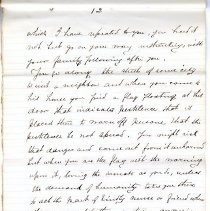 12
which I have repeated to you, you had
not but go on your way instantly, with
your family following after you.
You go along the streets of some city
to visit a neighbor and when you come to
his house you find a flag floating at the
door that indicates pestilence that is
placed there to warn off persons that the
pestilence to not spread. You might risk
that danger and come out from it unharmed
but when you see the flag with the warning
upon it, loving the inmates as you do, unless
the demand of humanity take you there
to the part of kindly nurse or friend when